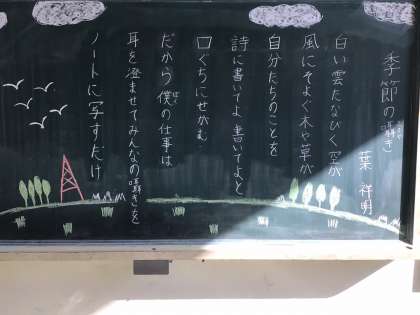 季節の囁き
ささや
葉 祥明
白い雲たなびく空が
風にそよぐ木や草が
自分たちのことを
詩に書いてよ 書いてよと
口ぐちにせがむ
だから 僕の仕事は
ぼく
耳を澄ませてみんなの囁きを
ノートに写すだけ